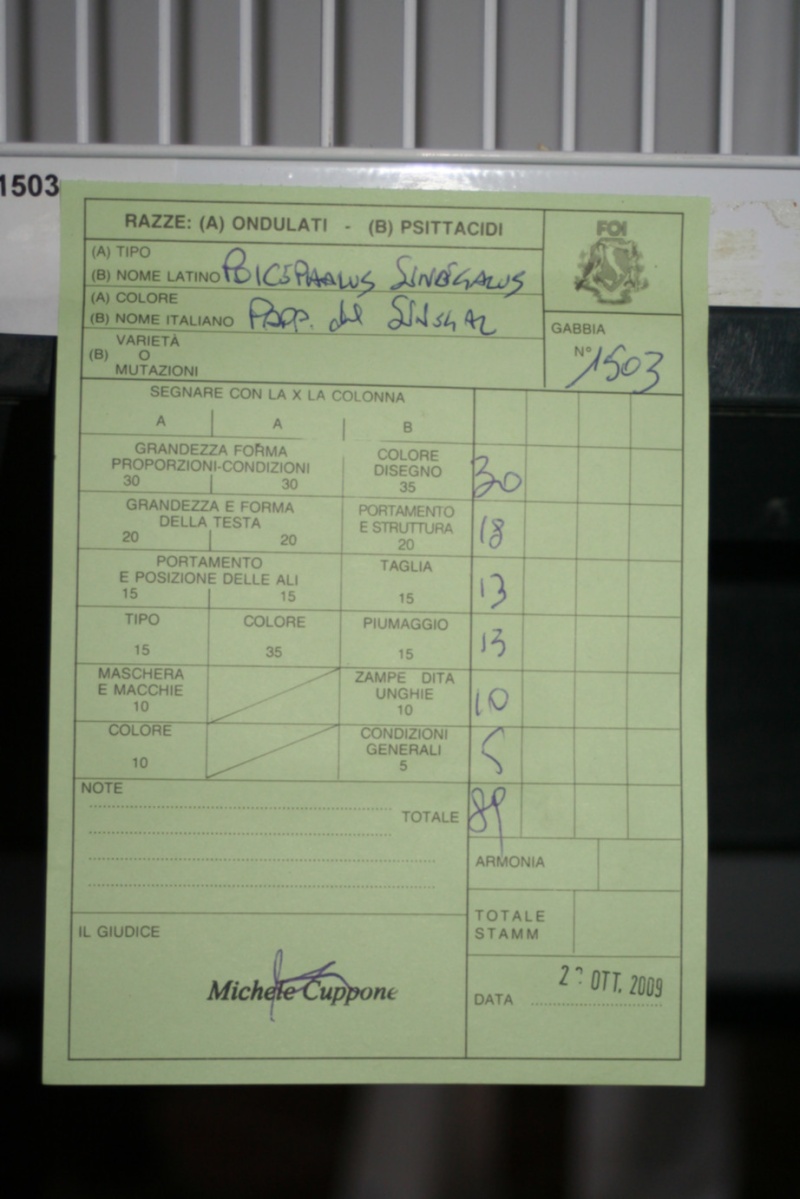 1503
RAZZE: (A) ONDULATI - (B) PSITTACIDI
FOI
(A) TIPO
(B) NOME LATINO POICEPHALUS SENEGALUS
(A) COLORE
(B) NOME ITALIANO PAPP. del SENEGAL
VARIETÀ
(B) O
MUTAZIONI
GABBIA
N° 1503
SEGNARE CON LA X LA COLONNA
A A B
GRANDEZZA FORMA
PROPORZIONI-CONDIZIONI
30 30
COLORE
DISEGNO
35
30
GRANDEZZA E FORMA
DELLA TESTA
20 20
PORTAMENTO
E STRUTTURA
20
18
PORTAMENTO
E POSIZIONE DELLE ALI
15 15
TAGLIA
15
13
TIPO
15
COLORE
35
PIUMAGGIO
15
13
MASCHERA
E MACCHIE
10
ZAMPE DITA
UNGHIE
10
10
COLORE
10
CONDIZIONI
GENERALI
5
5
NOTE
TOTALE 89
ARMONIA
TOTALE
STAMM
IL GIUDICE
Michele Cuppone
DATA OTT. 2009